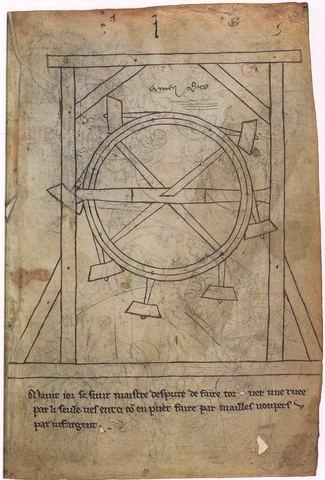 amen dico
Maint ior se sunt maistre despute de faire tor ner une ruee
par li seule ves ent ci cō en puet faire par mailles nonpers v
par vif argent